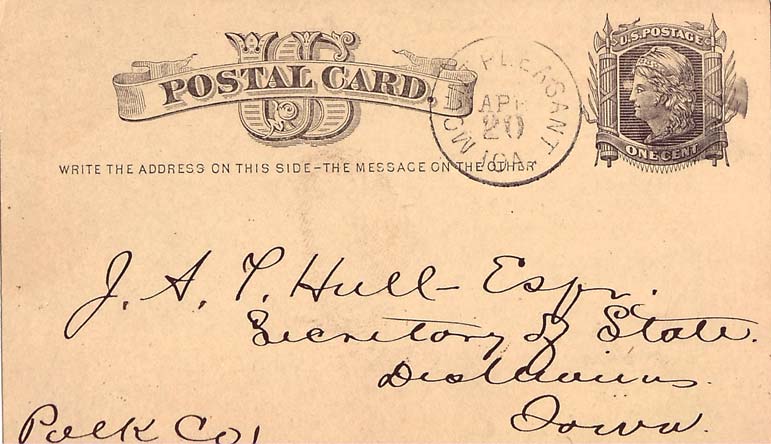 US
POSTAL CARD.
WRITE THE ADDRESS ON THIS SIDE–THE MESSAGE ON THE OTHER
MOUNT PLEASANT
APR
20
IOA.
U.S. POSTAGE
ONE CENT
J. A. T. Hull– Esqr.
Secretary of State.
Des Moines
Iowa.
Polk Co!